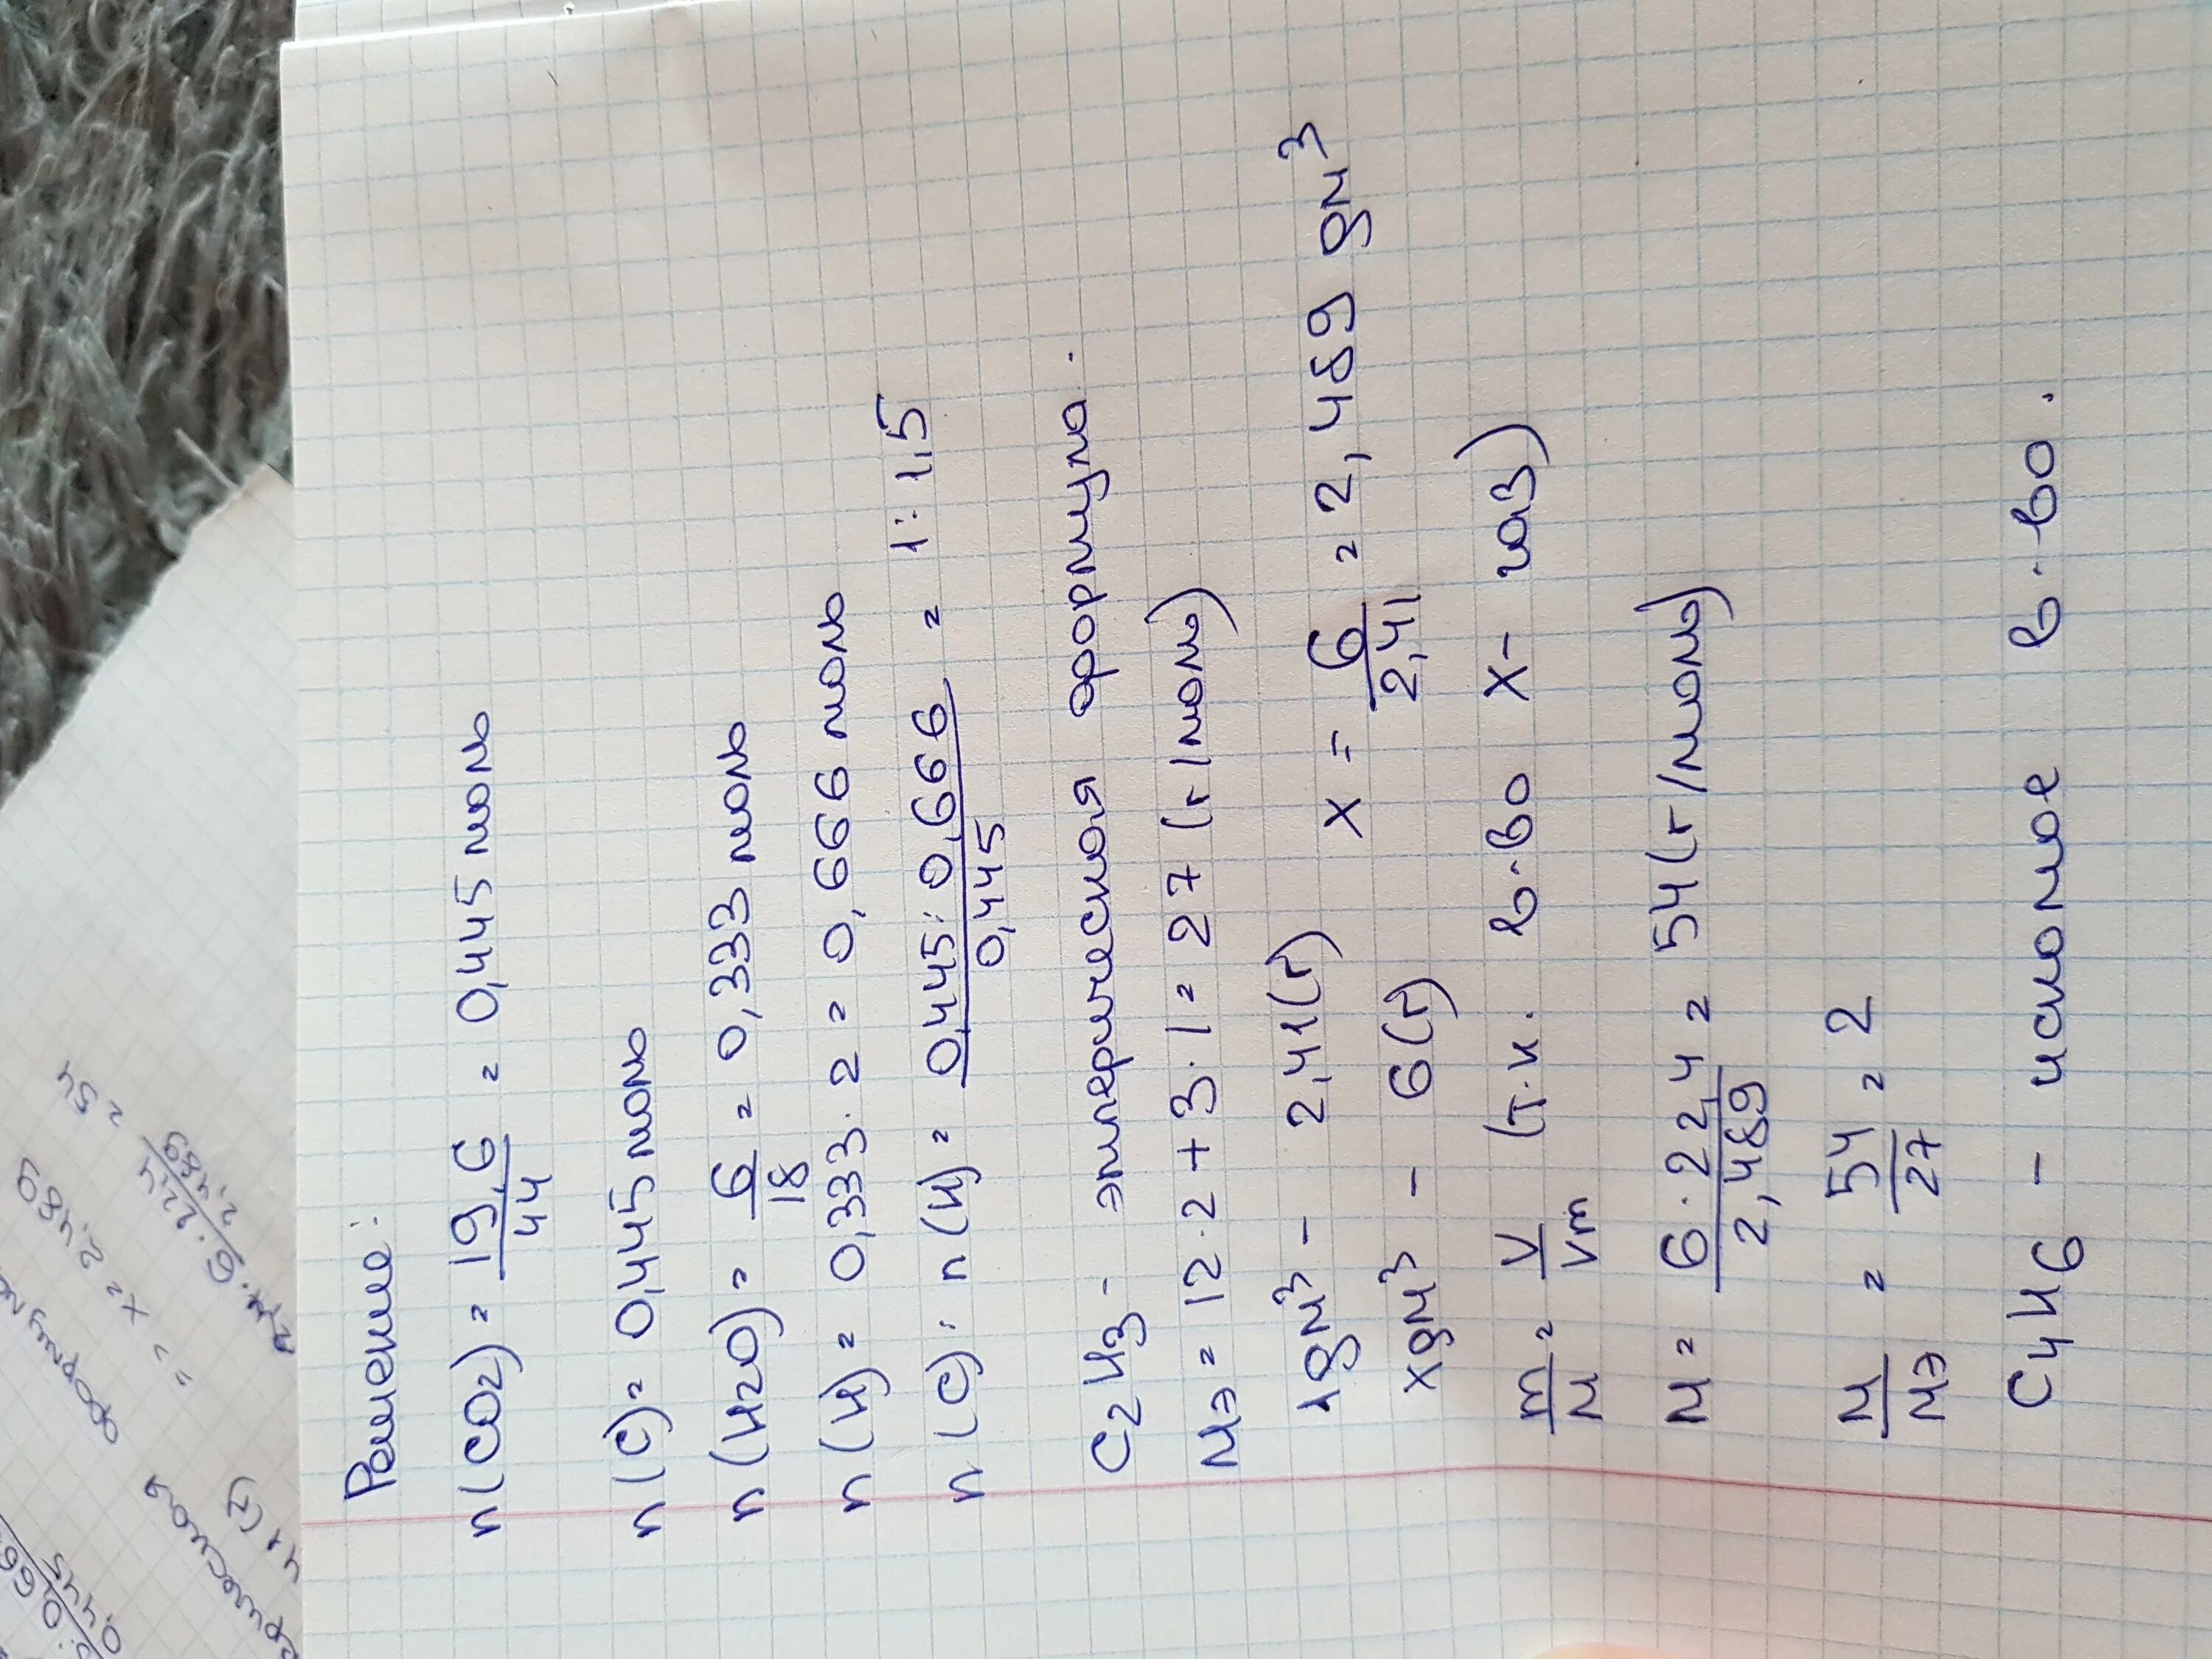 Решение:
n(CO2) = 19,6/44 = 0,445 моль
n(C) = 0,445 моль
n(H2O) = 6/18 = 0,333 моль
n(H) = 0,333 · 2 = 0,666 моль
n(C) : n(H) = 0,445 : 0,666/0,445 = 1 : 1,5
C2H3 - эмперическая формула.
Мэ = 12 · 2 + 3 · 1 = 27 (г/моль)
1дм³ - 2,41(г)
x = 6/2,41 = 2,489 дм³
xдм³ - 6(г)
m/M = V/Vm (т.к. в-во x - газ)
M = 6 · 22,4/2,489 = 54 (г/моль)
M/Mэ = 54/27 = 2
C4H6 - искомое в-во.
x = 2,489
6 · 22,4/2,489 = 54